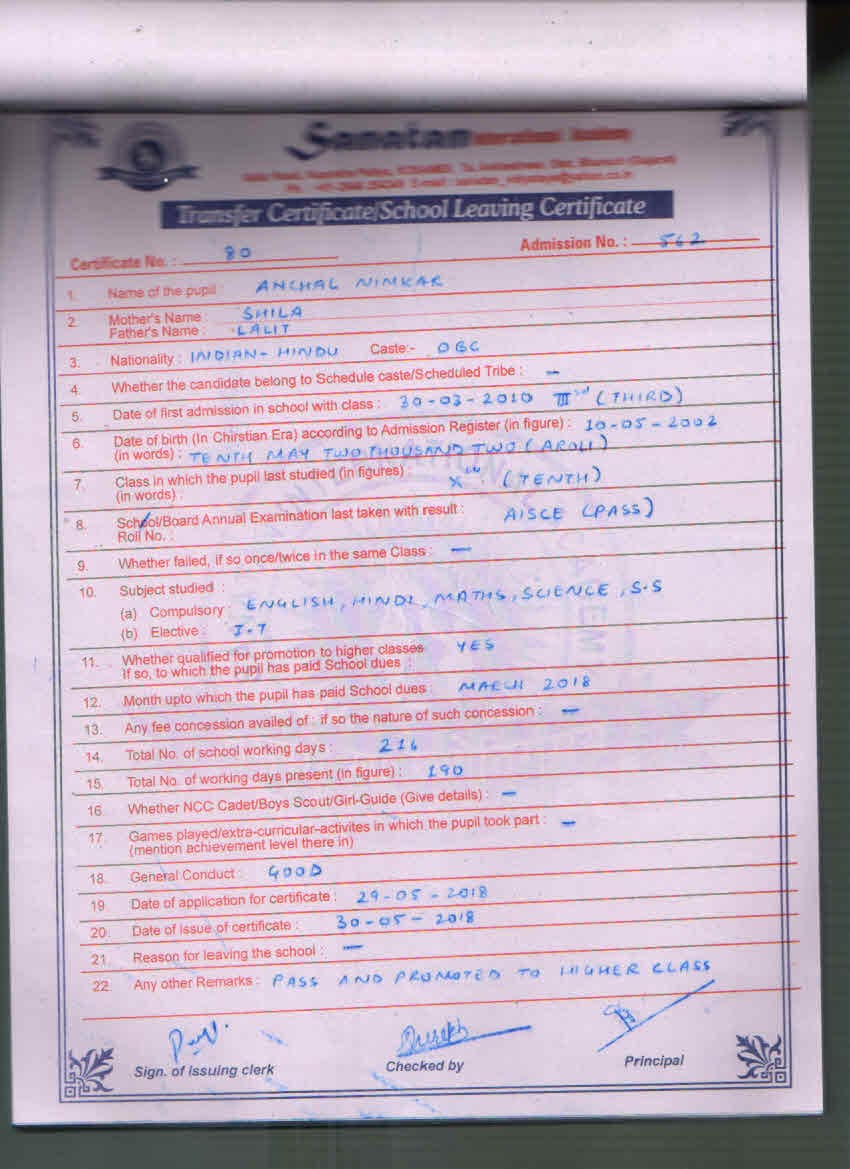 Sanatan International Academy
Transfer Certificate/School Leaving Certificate
Certificate No. : 80
Admission No. : 562
1. Name of the pupil : ANCHAL NIMKAR
2. Mother's Name : SHILA
Father's Name : LALIT
3. Nationality : INDIAN - HINDU Caste:- OBC
4. Whether the candidate belong to Schedule caste/Scheduled Tribe : –
5. Date of first admission in school with class : 30-03-2010 III rd (THIRD)
6. Date of birth (In Chirstian Era) according to Admission Register (in figure) : 10-05-2002
(in words) : TENTH MAY TWO THOUSAND TWO (AROLI)
7. Class in which the pupil last studied (in figures) : X th (TENTH)
(in words) :
8. School/Board Annual Examination last taken with result : AISCE (PASS)
Roll No. :
9. Whether failed, if so once/twice in the same Class : –
10. Subject studied :
(a) Compulsory : ENGLISH, HINDI, MATHS, SCIENCE, S.S
(b) Elective : I.T
11. Whether qualified for promotion to higher classes YES
If so, to which the pupil has paid School dues :
12. Month upto which the pupil has paid School dues : MARCH 2018
13. Any fee concession availed of : if so the nature of such concession : –
14. Total No. of school working days : 216
15. Total No. of working days present (in figure) : 190
16. Whether NCC Cadet/Boys Scout/Girl-Guide (Give details) : –
17. Games played/extra-curricular-activites in which the pupil took part : –
(mention achievement level there in)
18. General Conduct : GOOD
19. Date of application for certificate : 29-05-2018
20. Date of issue of certificate : 30-05-2018
21. Reason for leaving the school : –
22. Any other Remarks : PASS AND PROMOTED TO HIGHER CLASS
Sign. of issuing clerk
Checked by
Principal